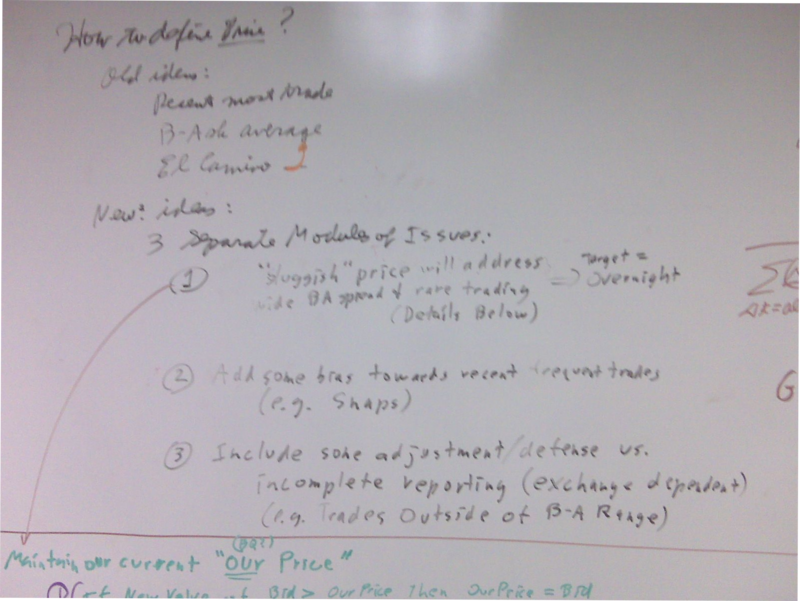 How to define Price?
Old ideas:
Recent most trade
B-Ask average
El Camino
New: ideas:
3 Separate Modules of Issues:
① "sluggish" price will address ⇒ Target = Overnight
wide BA spread & rare trading
(Details Below)
② Add some bias towards recent frequent trades
(e.g. Snaps)
③ Include some adjustment/defense vs.
incomplete reporting (exchange dependent)
(e.g. Trades Outside of B-A Range)
Maintain our current "Our Price"
New Value of Bid > Our Price Then Our Price = Bid
G